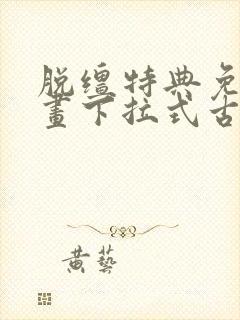 脱缰特典免
畫下拉式古
黄藝